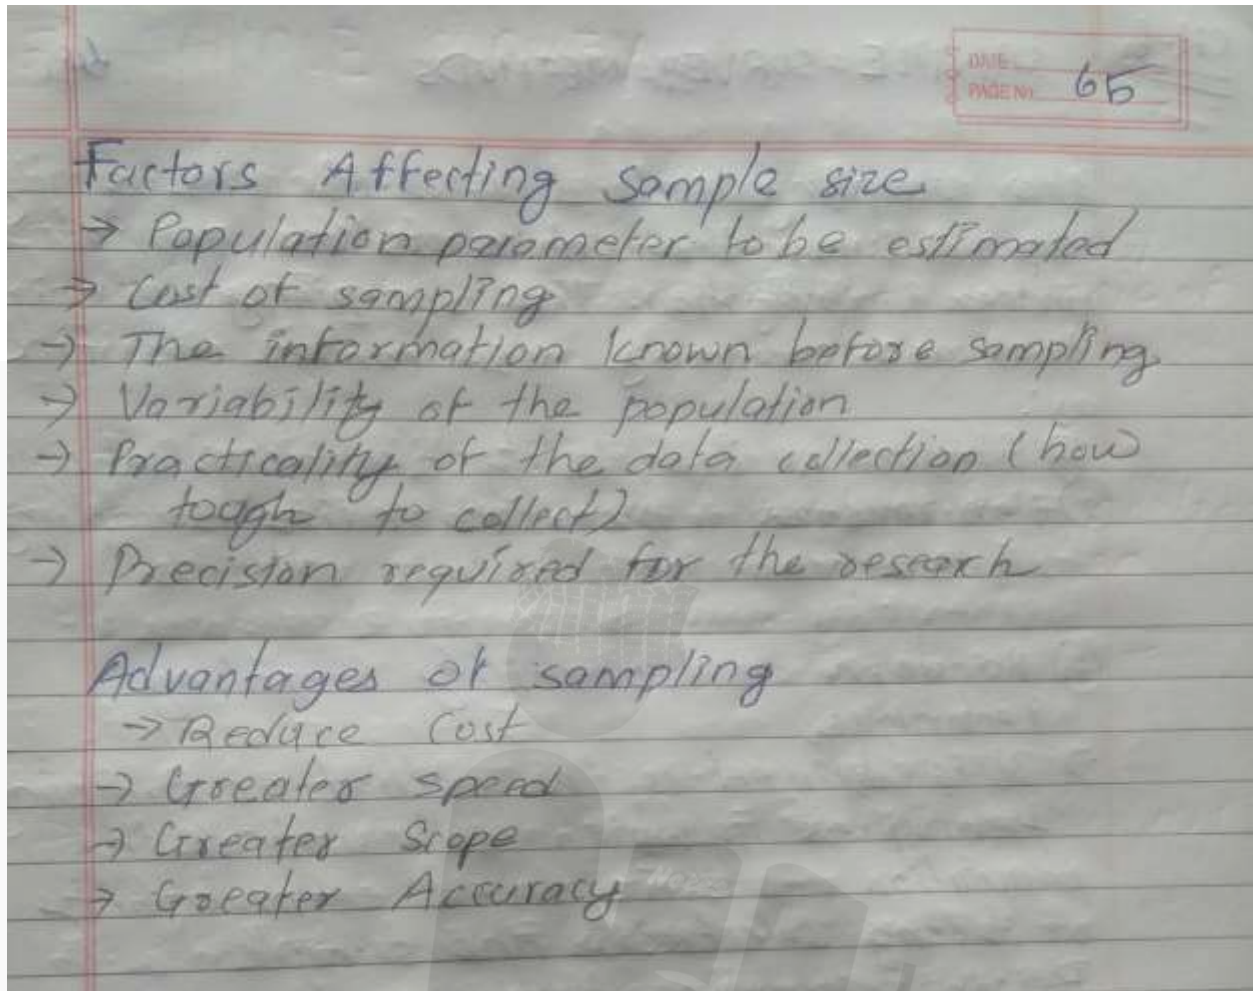 DATE:
PAGE No. 65
Factors Affecting sample size
→ Population parameter to be estimated
→ Cost of sampling
→ The information known before sampling
→ Variability of the population
→ Practicality of the data collection (how
tough to collect)
→ Precision required for the research
Advantages of sampling
→ Reduce Cost
→ Greater speed
→ Greater Scope
→ Greater Accuracy